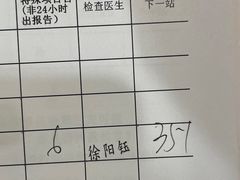 (非24小时 检查医生 下一站
出报告)
6 徐阳钰 351